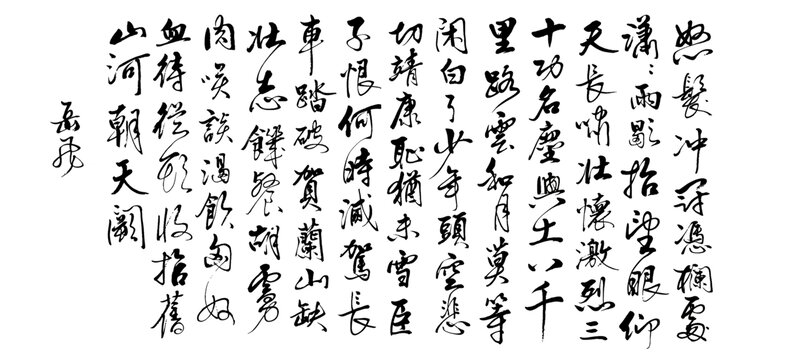 怒髮冲冠憑欄處
瀟瀟雨歇抬望眼仰
天長嘯壯懷激烈三
十功名塵與土八千
里路雲和月莫等
閑白了少年頭空悲
切靖康恥猶未雪臣
子恨何時滅駕長
車踏破賀蘭山缺
壯志饑餐胡虜
肉笑談渴飲匈奴
血待從頭收拾舊
山河朝天闕
岳飛